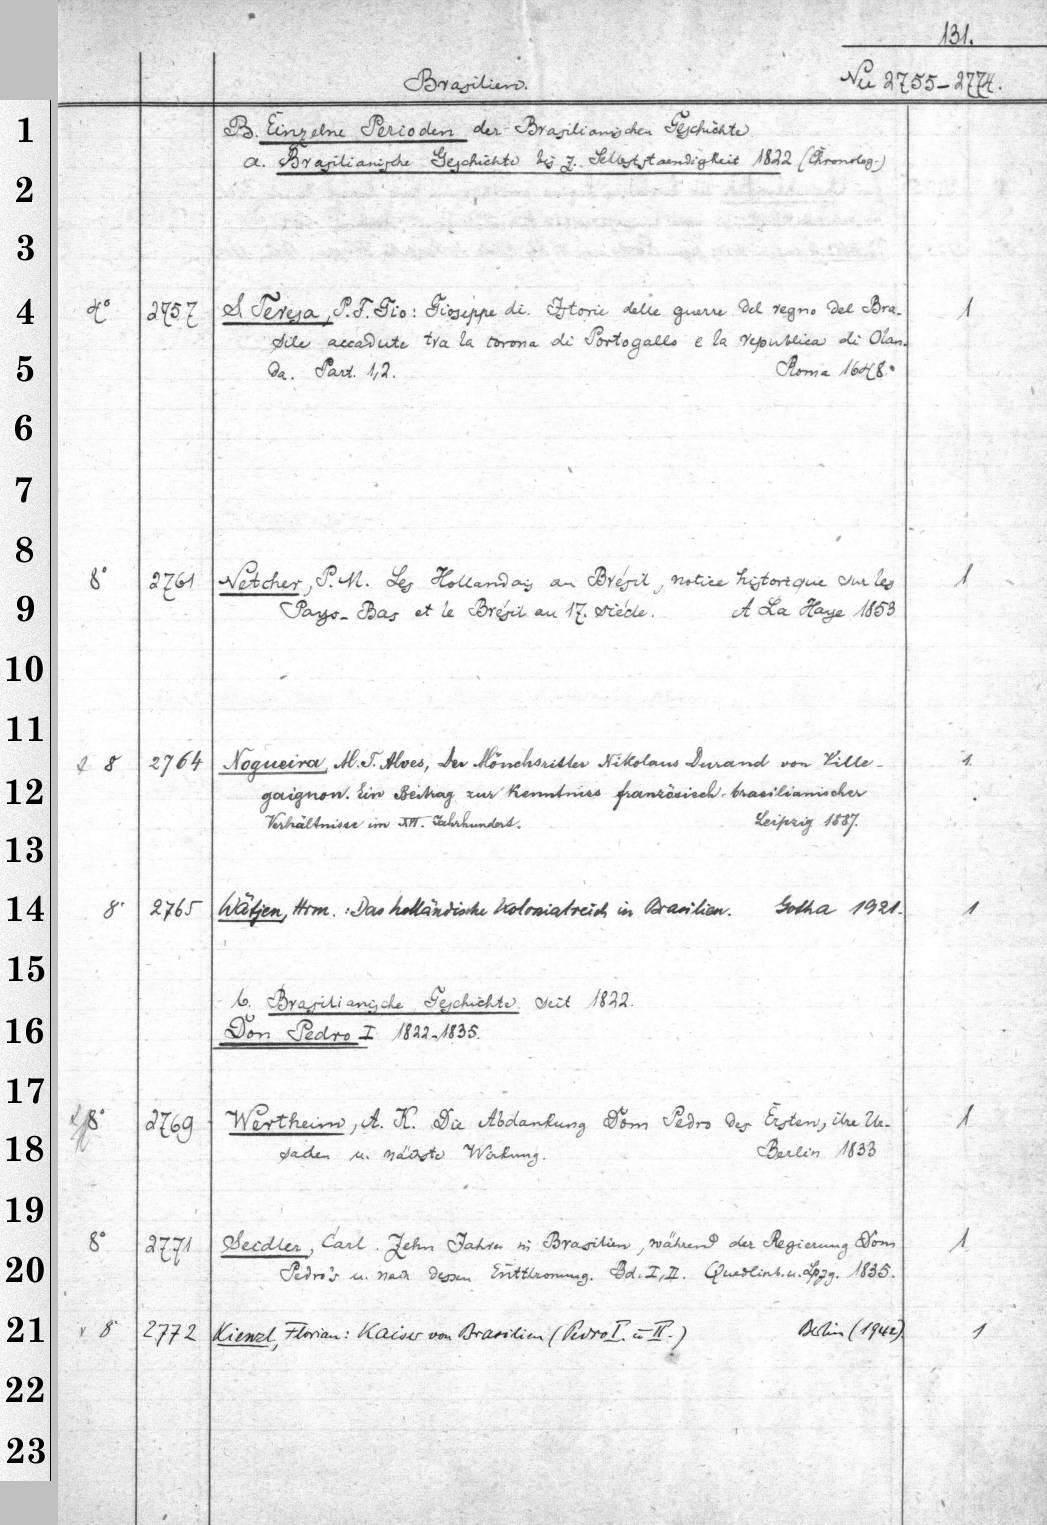 131.
Brasilien. Nu 2755-2774.
1 B. Einzelne Perioden der Brasilianischen Geschichte
a. Brasilianische Geschichte bis z. Selbststaendigkeit 1822 (Chronolog.)
2
3
4 4° 2757 S. Teresa, P. F. Gio: Gioseppe di. Istorie delle guerre del regno del Bra- 1
sile accadute tra la corona di Portogallo e la republica di Olan-
5 da. Part. 1,2. Roma 1648.
6
7
8
8° 2761 Netcher, P. M. Les Hollandais au Brésil, notice historique sur les 1
9 Pays-Bas et le Brésil au 17. siécle. A La Haye 1853
10
11
8 2764 Nogueira, M. T. Alves, Der Mönchsritter Nikolaus Durand von Ville- 1
12 gaignon. Ein Beitrag zur Kenntniss französisch-brasilianischer
Verhältnisse im XVI. Jahrhundert. Leipzig 1887.
13
14 8° 2765 Wätjen, Hrm.: Das holländische Kolonialreich in Brasilien. Gotha 1921. 1
15
b. Brasilianische Geschichte seit 1822.
16 Don Pedro I 1822-1835.
17
8° 2769 Wertheim, A. K. Die Abdankung Dom Pedro des Ersten, ihre Ur- 1
18 sachen u. nächste Wirkung. Berlin 1833
19
8° 2771 Seidler, Carl. Zehn Jahre in Brasilien, während der Regierung Dom 1
20 Pedro's u. nach dessen Entthronung. Bd. I, II. Quedlinb. u. Lpzg. 1835.
21 8° 2772 Kienzl, Florian: Kaiser von Brasilien (Pedro I. u II.) Berlin (1942) 1
22
23